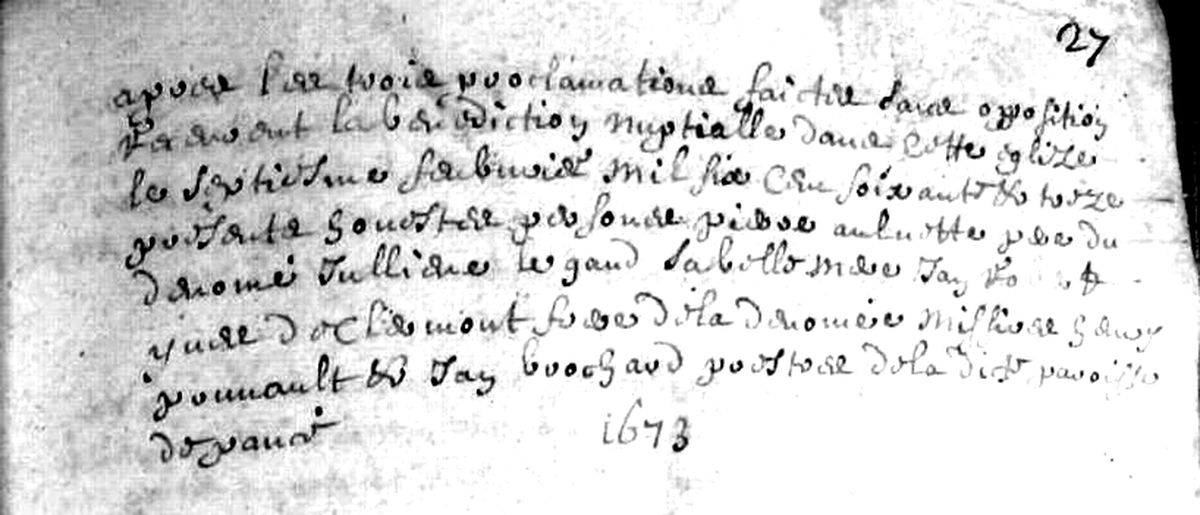 27
apres les trois proclamations faictes sans opposition
recevent la benediction nuptialle dans cette eglize
le septiesme febvrier mil six cen soixante & treze
presents honestes persones pierre aulnette pere du
denomé Jullienne le gaud sa belle mere Jan
yves de Clermont frere de la denomée missires henry
pounault & Jan brochard prestres de la dicte paroisse
de pancé 1673